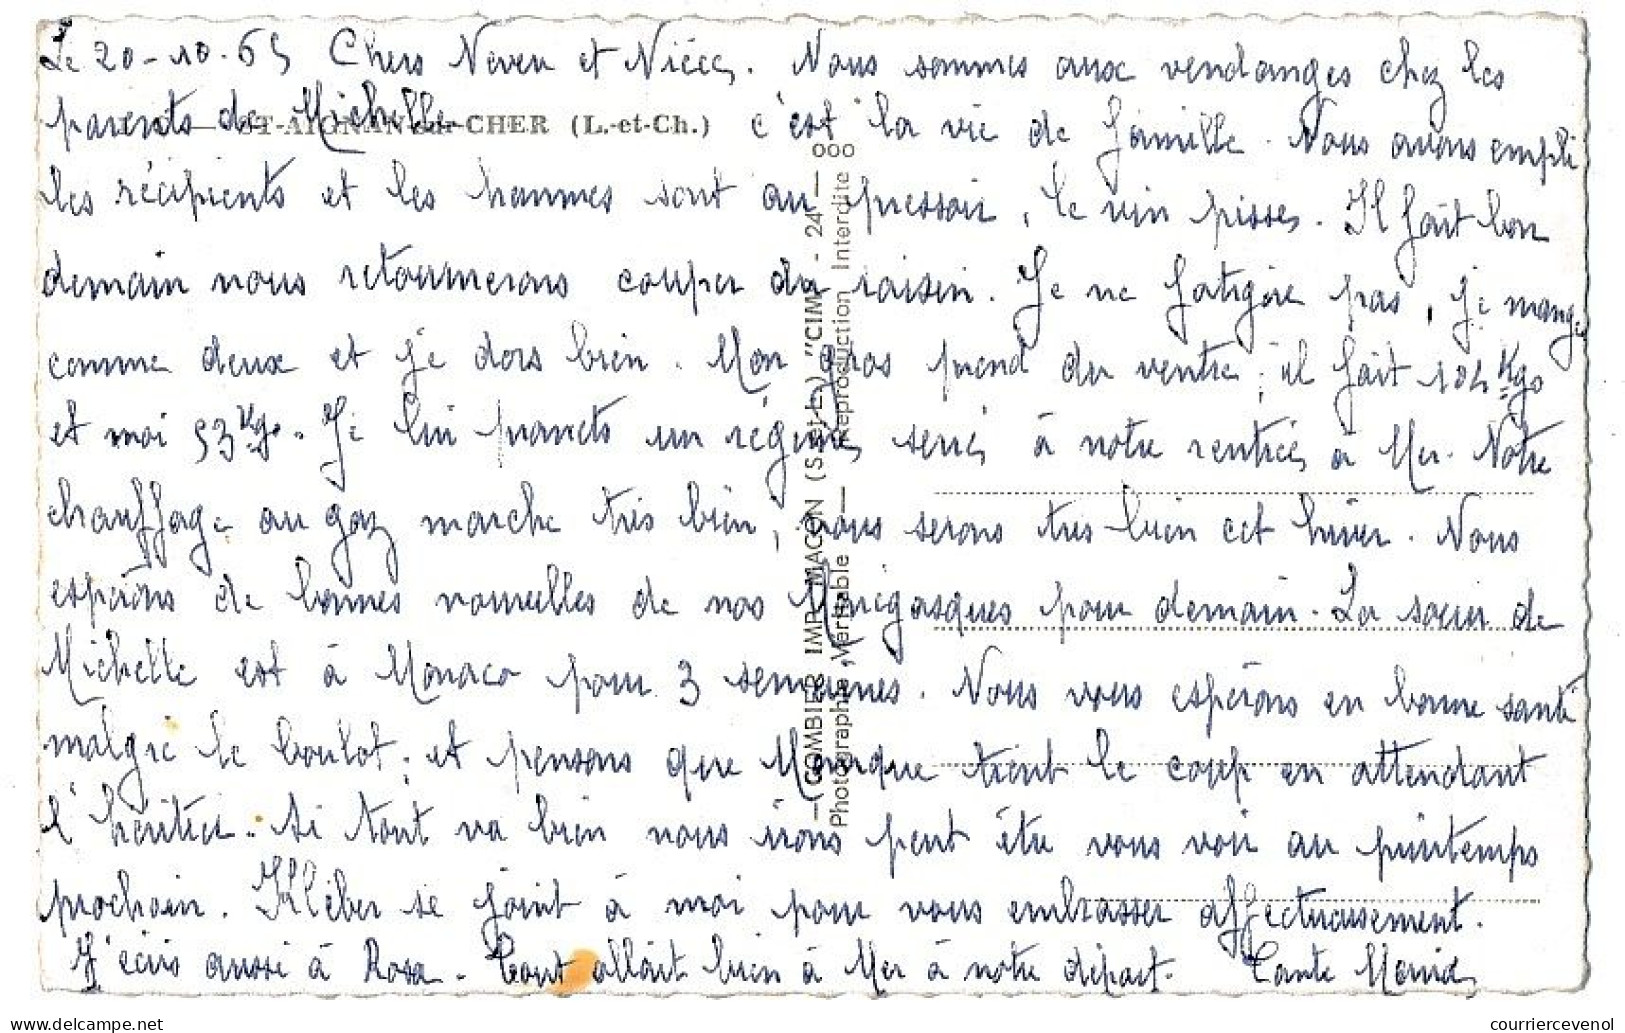 Le 20-10-65 Chers Neveu et Nièce. Nous sommes aux vendanges chez les
parents de Michelle c'est la vie de famille. Nous avons empli
ST-AIGNAN-sur-CHER (L.-et-Ch.)
les récipients et les hommes sont au pressoir, le vin pisse. Il fait bon
demain nous retournerons couper du raisin. Je ne fatigue pas, je mange
comme deux et je dors bien. Mon gros prend du ventre, il fait 104 Kgs
et moi 53 Kgs. Je lui promets un régime serré à notre rentrée à Mer. Notre
chauffage au gaz marche très bien, nous serons très bien cet hiver. Nous
espérons de bonnes nouvelles de nos Monégasques pour demain. La sœur de
Michelle est à Monaco pour 3 semaines. Nous vous espérons en bonne santé
malgré le boulot, et pensons que Monique tient le coup en attendant
l'héritier. Si tout va bien nous irons peut être vous voir au printemps
prochain. Kléber se joint à moi pour vous embrasser affectueusement.
J'écris aussi à Rosa. Tout allait bien à Mer à notre départ. Tante
— COMBIER IMP. MACON (S.-et-L.) "CIM" - 24 — 000
Photographie Véritable — Reproduction Interdite
delcampe.net
courriercevenol